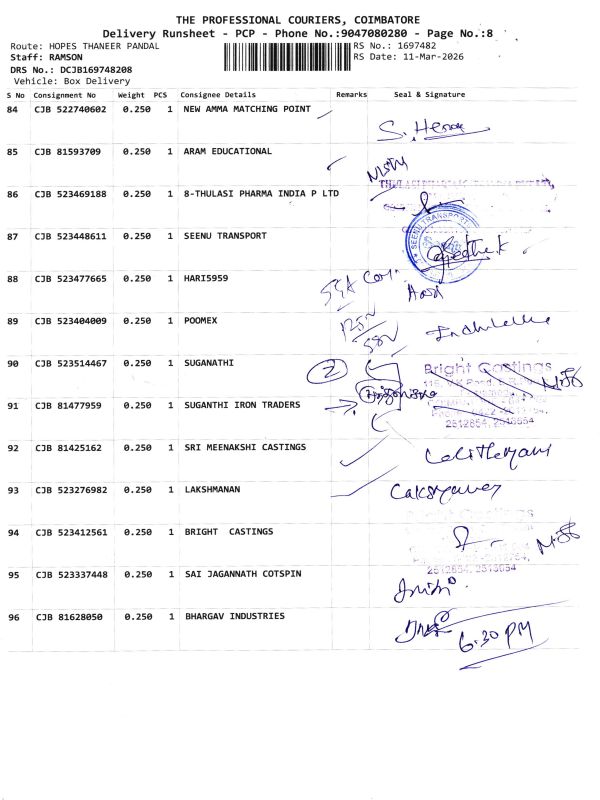 THE PROFESSIONAL COURIERS, COIMBATORE
Delivery Runsheet - PCP - Phone No.:9047080280 - Page No.:8
Route: HOPES THANEER PANDAL RS No.: 1697482
Staff: RAMSON RS Date: 11-Mar-2026
DRS No.: DCJB169748208
Vehicle: Box Delivery
S No Consignment No Weight PCS Consignee Details Remarks Seal & Signature
84 CJB 522740602 0.250 1 NEW AMMA MATCHING POINT
85 CJB 81593709 0.250 1 ARAM EDUCATIONAL
86 CJB 523469188 0.250 1 8-THULASI PHARMA INDIA P LTD
87 CJB 523448611 0.250 1 SEENU TRANSPORT SEENU TRANSPORT
88 CJB 523477665 0.250 1 HARI5959
Hari
89 CJB 523404009 0.250 1 POOMEX
90 CJB 523514467 0.250 1 SUGANATHI 2 Bright Castings
91 CJB 81477959 0.250 1 SUGANTHI IRON TRADERS
2512654, 2513654
92 CJB 81425162 0.250 1 SRI MEENAKSHI CASTINGS
93 CJB 523276982 0.250 1 LAKSHMANAN
94 CJB 523412561 0.250 1 BRIGHT CASTINGS Bright Castings
2512654, 2513654
95 CJB 523337448 0.250 1 SAI JAGANNATH COTSPIN
96 CJB 81628050 0.250 1 BHARGAV INDUSTRIES
6.30 PM